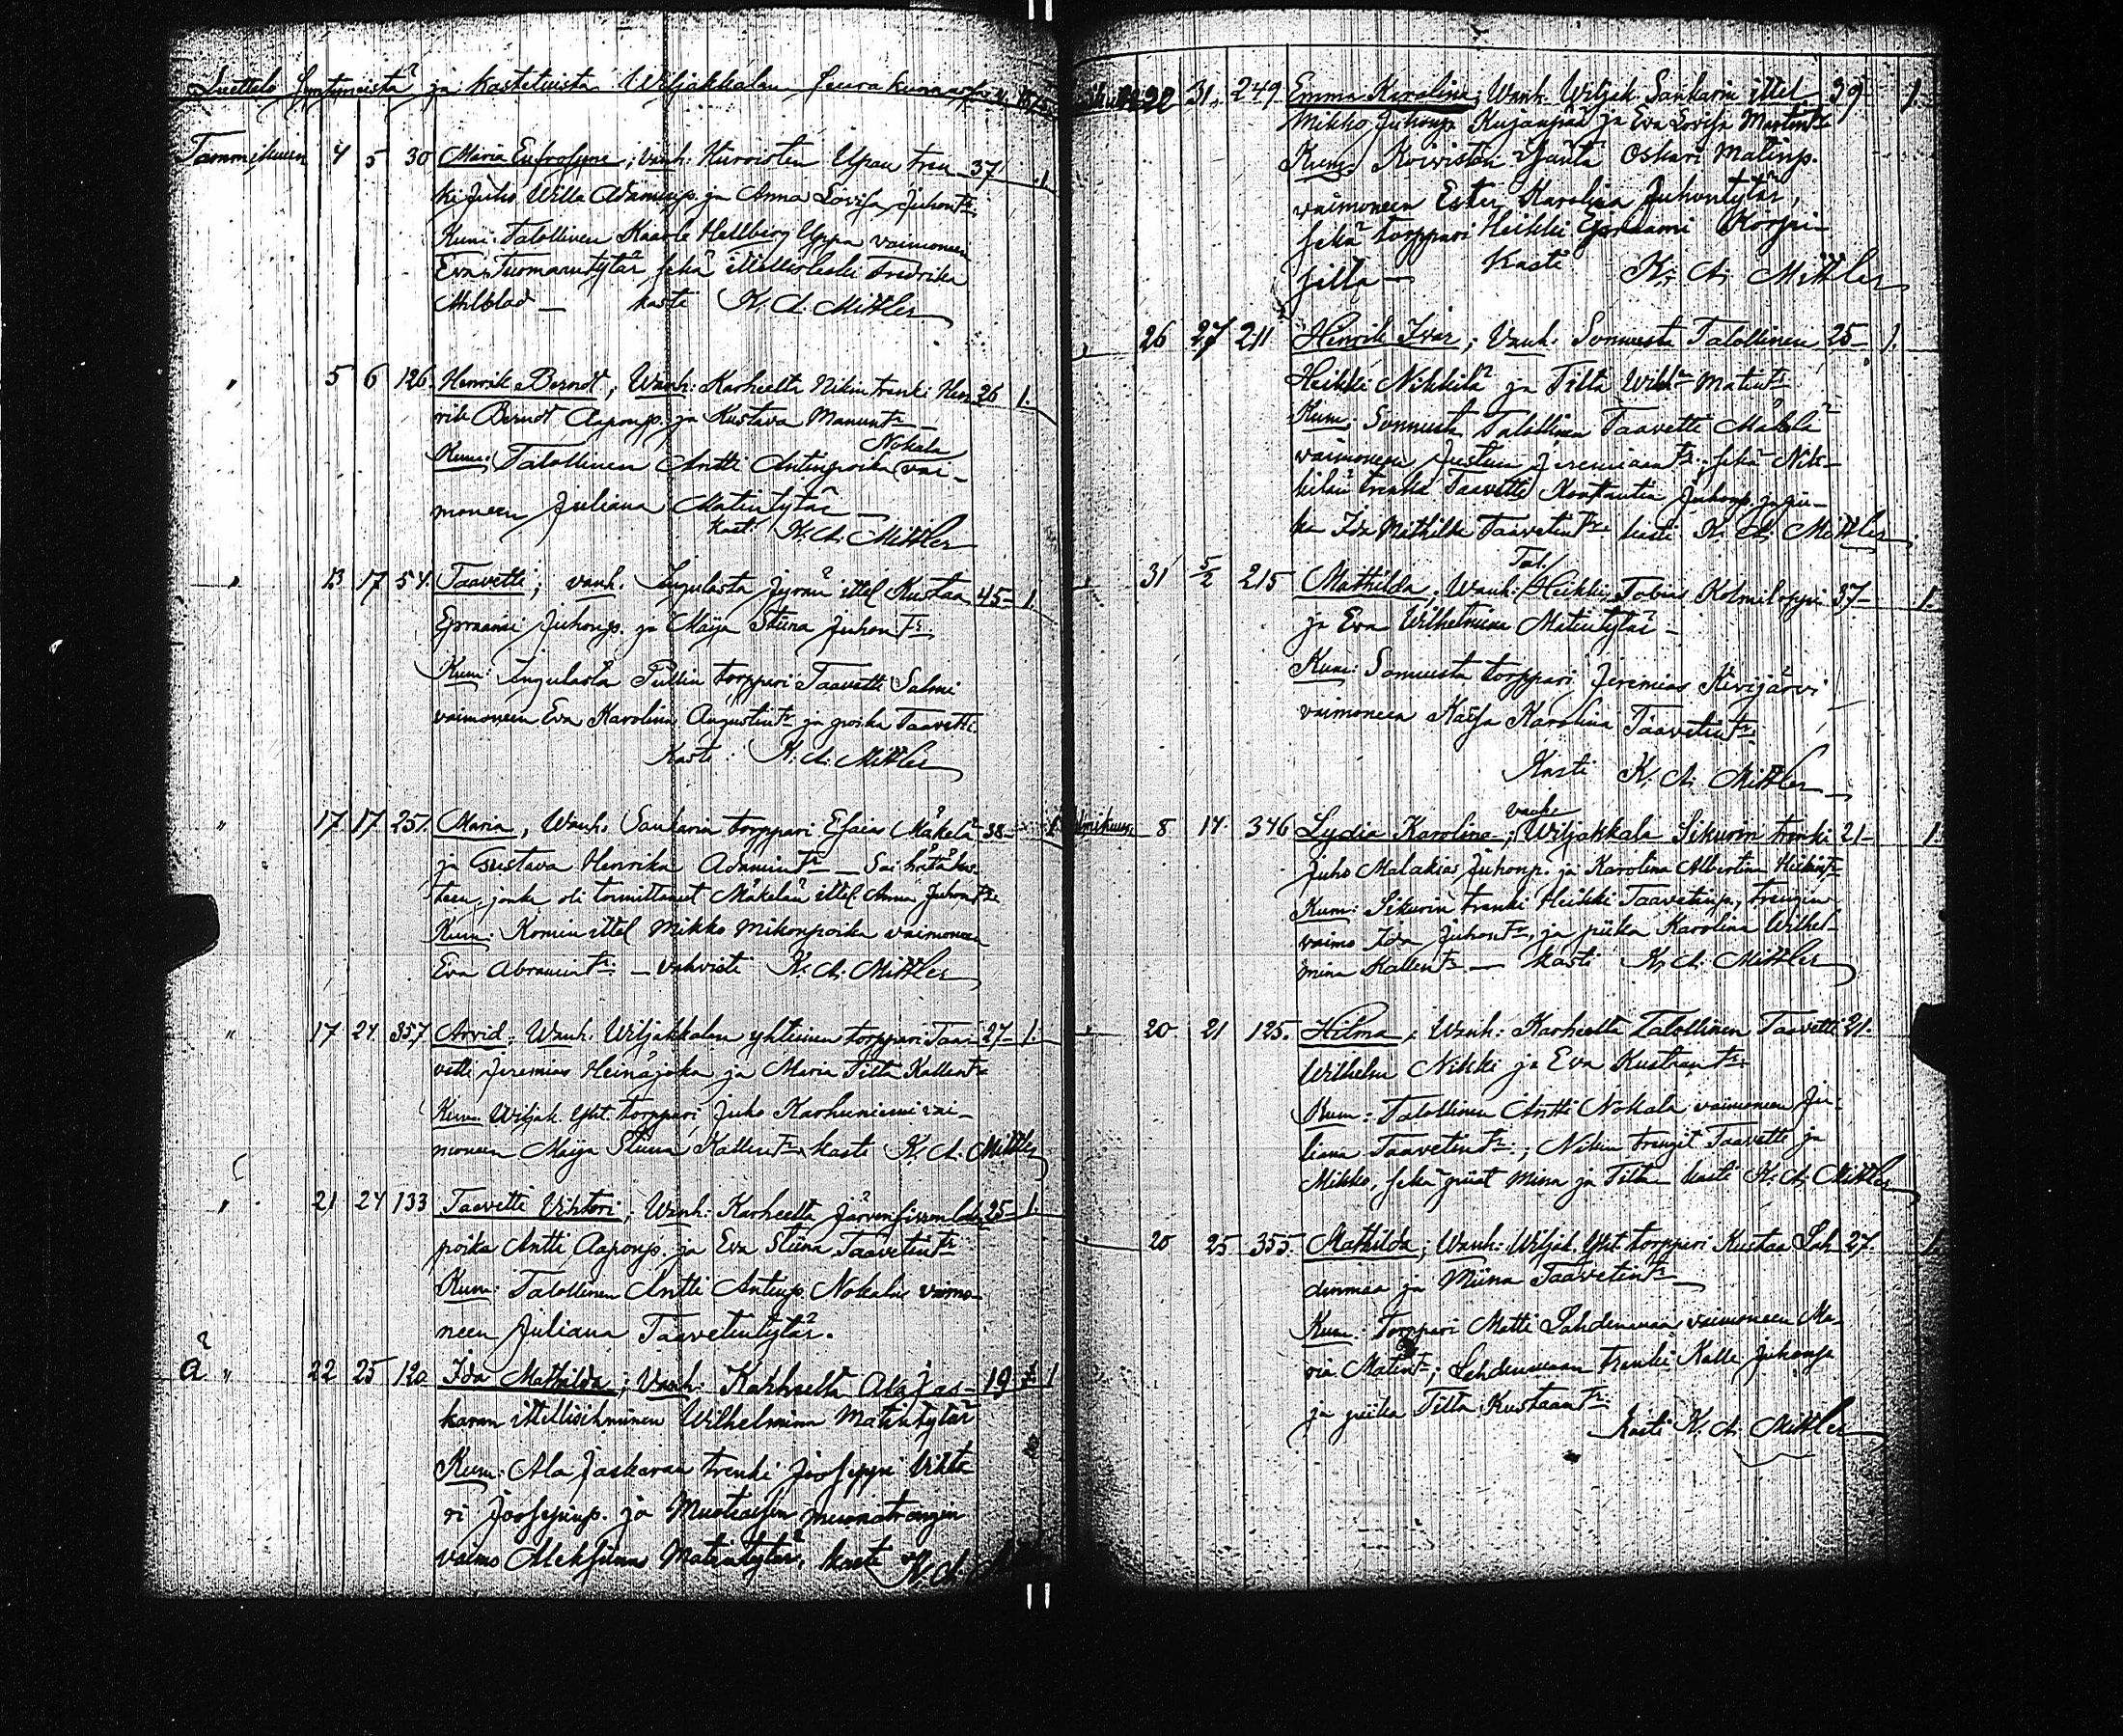 Luettelo syntyneistä ja kastetuista Wiljakkalan Seurakunnassa
Tammikuun 4 5 30 Maria Eufrosyne; vanh: 37 1.
Juho Willa Adaminp. ja Anna Lovisa Juhont:r
Kum: Talollinen Kaarle Hellberg Uppa vaimoneen
Eva Tuomaantytär sekä Fredrika
Ahlblad — kasti K. A. Mittler
" 5 6 126 Henrik Berndt; Wanh: Karheelta Nikin trenki Hen- 26 1.
rik Berndt Aaponp. ja Kustava Manunt:r
Nokala
Kum: Talollinen Antti Antinpoika vai-
moneen Juliana Matintytär —
kast: K. A. Mittler
" 13 17 54. Taavetti; vanh. Inkulasta ittel Kustaa 45- 1.
Epraami Juhonp. ja Maija Stiina Juhont:r
Kum: Inkulasta torppari Taavetti Salmi
vaimoneen Eva Karolina Augustint:r ja poika Taavetti.
Kasti: K. A. Mittler
" 17 17 251. Maria, Wanh. Sankarin torppari Esaias Mäkelä 38- 1
ja Gustava Henrika Adamint:r — Sai hätäkas-
teen, jonka oli toimittanut Mäkelän ittel. Anna Juhont:r
Kum: Komin ittel Mikko Mikonpoika vaimoneen
Eva Abramint:r — vahvisti K. A. Mittler
" 17 24 357 Arvid; Wanh. Wiljakkalan yhteinen torppari Taa- 27- 1.
vetti Jeremias Heinäjoka ja Maria Tilta Kallent:r
Kum. Wiljak. Yht. torppari Juho Karhuniemi vai-
moneen Maija Stiina Kallent:r kasti K. A. Mittler
" 21 24 133 Taavetti Vihtori; Wanh: Karheelta 25- 1.
poika Antti Aaponp. ja Eva Stiina Taavetint:r
Kum: Talollinen Antti Antinp. Nokala vaimo-
neen Juliana Taavetintytär.
Ä " 22 25 120 Ida Mathilda; Vanh: Karheelta Ala Jas- 19 1
karan ittellisihminen Wilhelmina Matintytär
Kum: Ala Jaskaran trenki Jooseppi Vihto
ri Joosepinp. ja
vaimo Matintytär, kasti K. A.
22 31. 249 Emma Karolina; Wanh. Wiljak. Sankarin ittel 39 1.
Mikko Juhonp. Kujanpää ja Eva Lovisa Martint:r
Kum: Koiviston Oskari Matinp.
vaimoneen Ester Karolina Juhontytär,
sekä torppari Heikki
Kasti K. A. Mittler
26 27 211 Henrik Ivar; Vanh: Sonnusta Talollinen 25- 1.
Heikki Nikkilä ja Tilta Matint:r
Kum. Sonnusta Talollinen Taavetti Mäkelä
vaimoneen Justiina Jeremiaant:r; sekä Nik-
kilän trenki Taavetti Juhonp. ja pii-
ka Ida Mathilda Taavetint:r kasti K. A. Mittler
Tal.
31 5/2 215 Mathilda, Wanh: Heikki Tobias Kolmiloppi 37- 1.
ja Eva Wilhelmina Matintytär —
Kum: Sonnusta torppari Jeremias Kivijärvi
vaimoneen Kaisa Karolina Taavetint:r
Kasti K. A. Mittler
vanh:
8 14. 346 Lydia Karolina; Wiljakkala Sikurin trenki 21- 1.
Juho Malakias Juhonp. ja Karolina Albertina Heikint:r
Kum: Sikurin trenki Heikki Taavetinp., trengin
vaimo Ida Juhont:r, ja piika Karolina Wilhel-
mina Kallent:r — kasti K. A. Mittler
20. 21 125. Hilma; Wanh: Karheelta Talollinen Taavetti 21.
Wilhelm Nikki ja Eva Kustaant:r
Kum: Talollinen Antti Nokala vaimoneen Ju-
liana Taavetint:r; Nikin trengit Taavetti ja
Mikko, sekä piiat Miina ja Tilta kasti K. A. Mittler
20 25 355. Mathilda; Wanh: Wiljak. Yht. torppari Kustaa Lah- 27. 1.
denmaa ja Miina Taavetint:r
Kum: Torppari Matti Lahdenmaa vaimoneen Ma-
ria Matint:r; Lahdenmaan trenki Kalle Juhonp.
ja piika Tilta Kustaant:r
Kasti K. A. Mittler